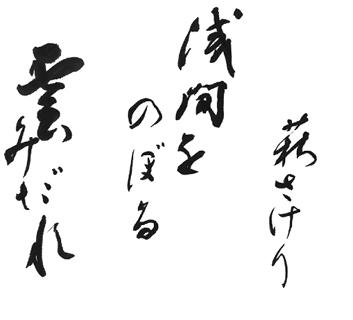 萩さけり
浅間を
のぼる
雲みだれ